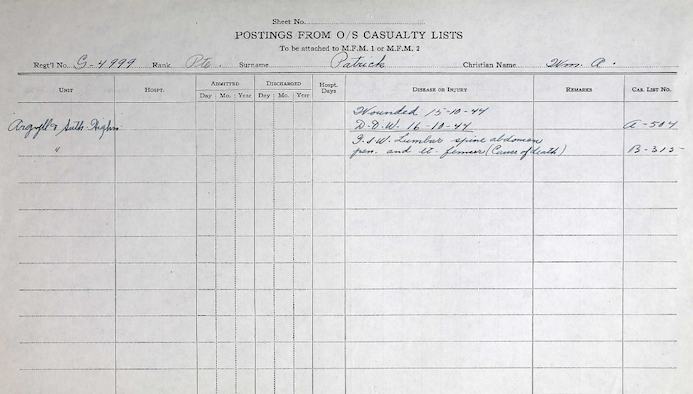 Sheet No.
POSTINGS FROM O/S CASUALTY LISTS
To be attached to M.F.M. 1 or M.F.M. 2
Reg't'l No. G-4999 Rank Pte. Surname Patrick Christian Name Wm. A.
Unit Hospt. Admitted Discharged Hospt. Days Disease or Injury Remarks Cas. List No.
Day Mo. Year Day Mo. Year
Wounded 15-10-44
Argyll & Suth. Highrs D.O.W. 16-10-44 A-504
" G.S.W. Lumbar spine abdomen
pen. and lt. femur (Cause of death) B-315